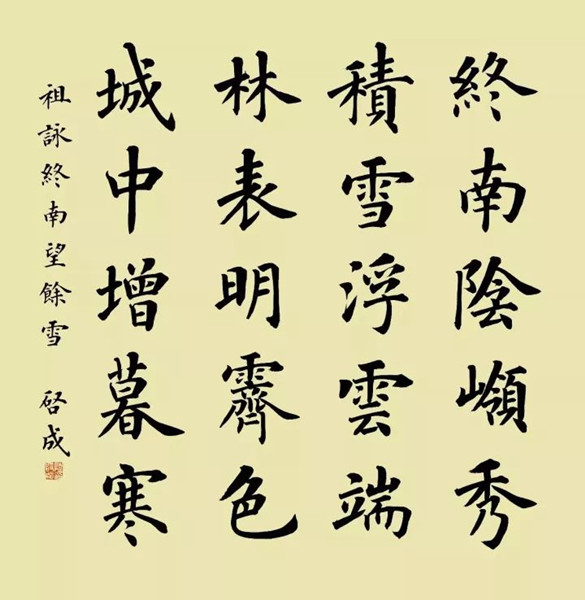 終南陰嶺秀
積雪浮雲端
林表明霽色
城中增暮寒
祖詠終南望餘雪 啓成